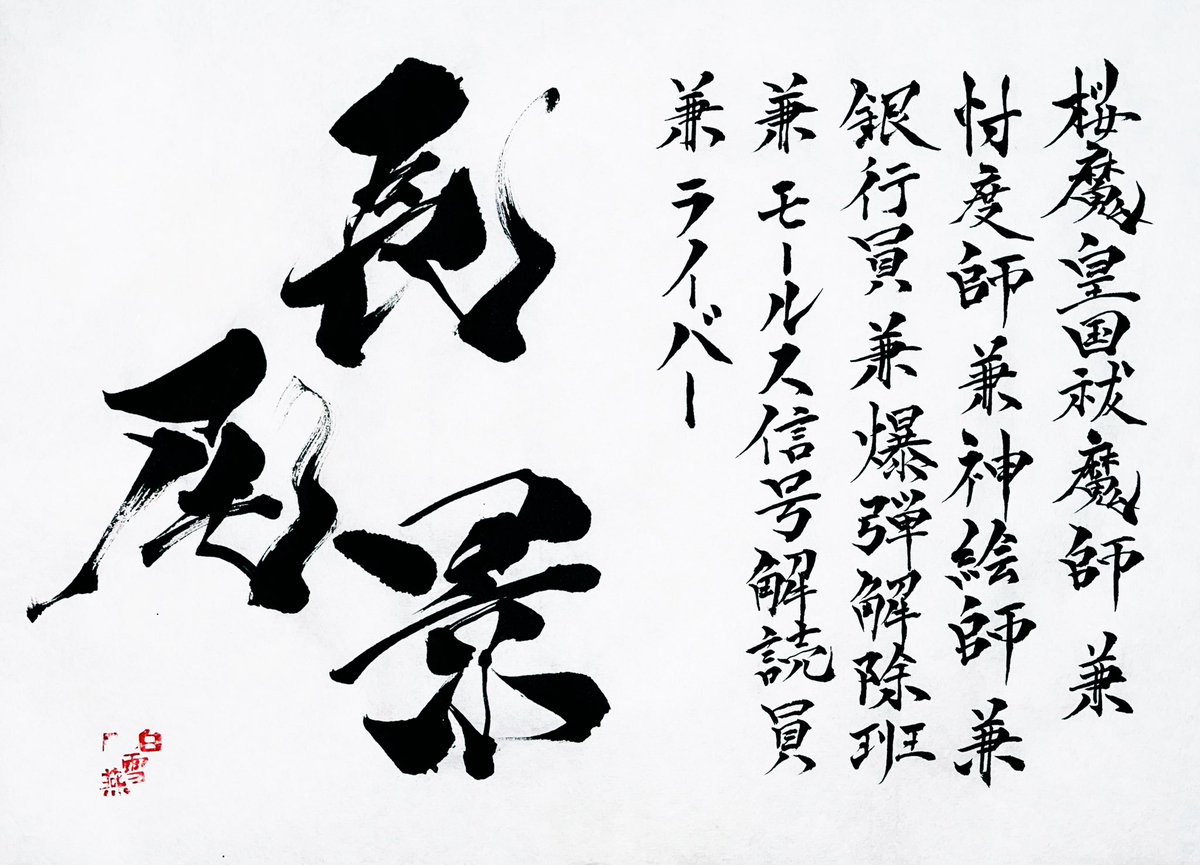 桜魔皇国祓魔師 兼
忖度師 兼 神絵師 兼
銀行員 兼 爆弾解除班
兼 モールス信号解読員
兼 ライバー
長尾景
白雪燕